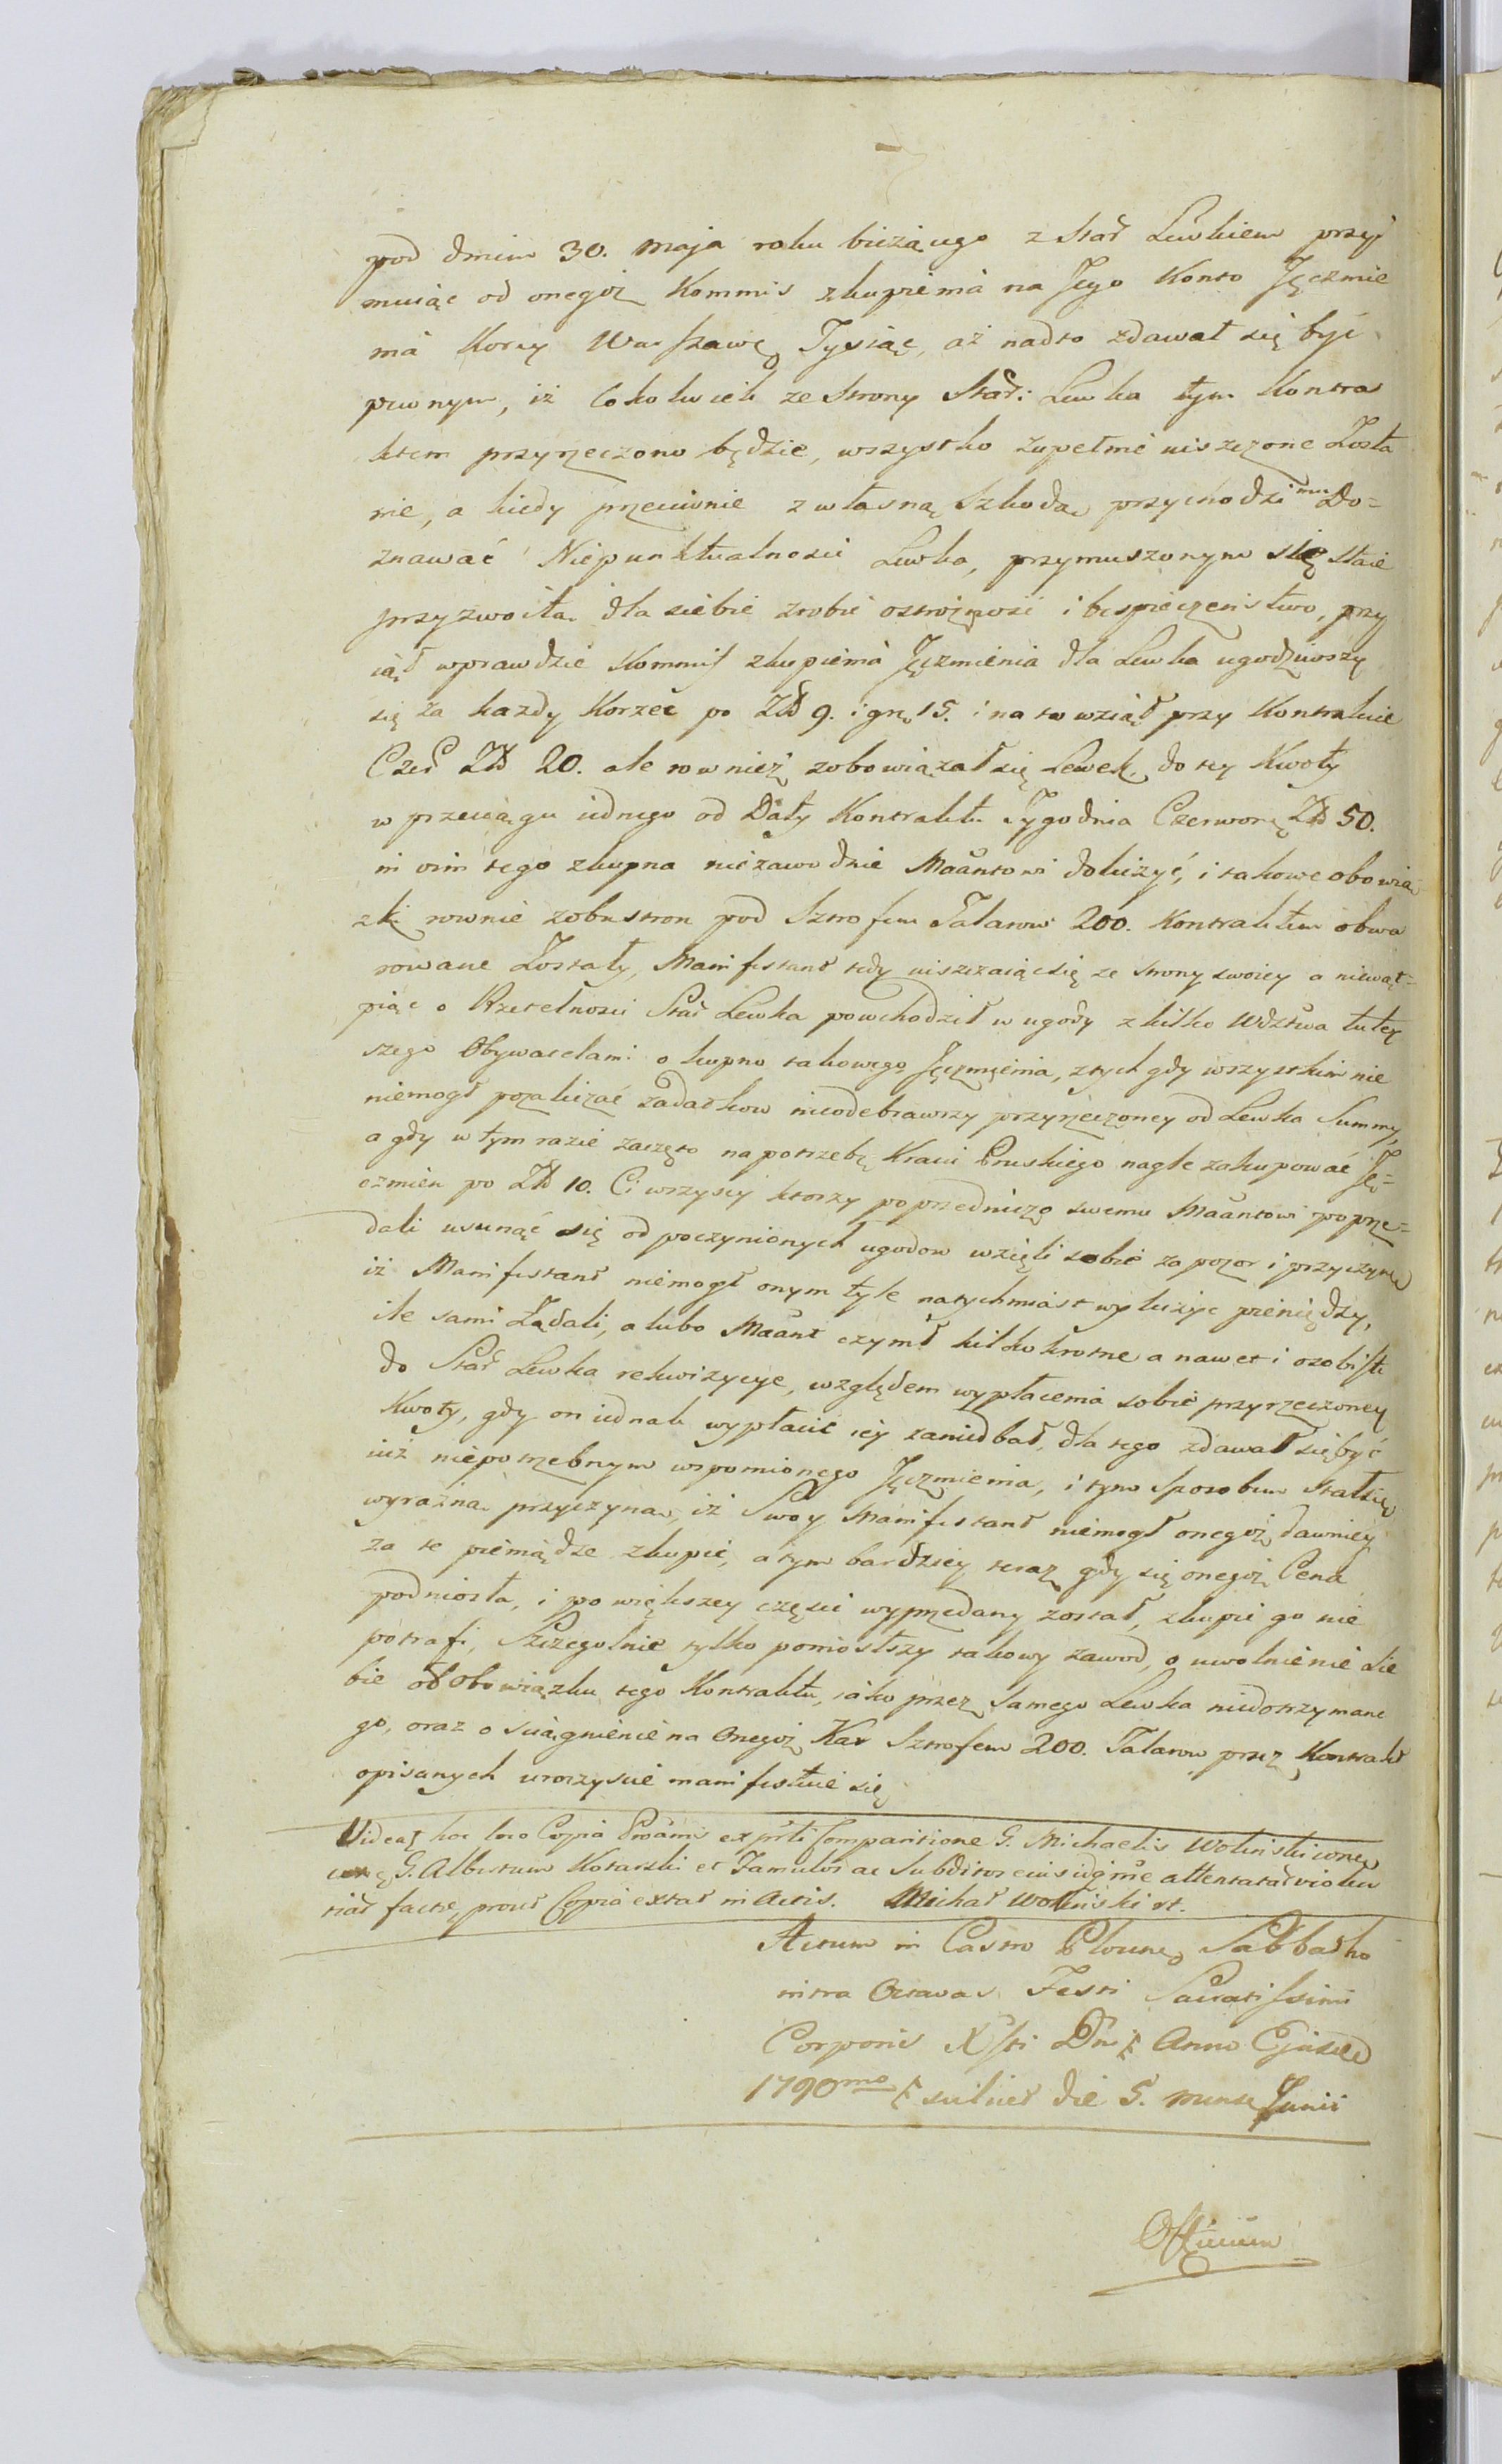 pod dniem 30. maja roku bieżącego z Star Lewkiem przyi
muiąc od onegoż Kommis zkupienia na Jego Konto Jęczmie
nia Korcy Warszawę Tysiąc, aż nadto zdawał się być
pewnym, iż Cokolwiek ze strony Star: Lewka tym Kontra
ktem przyrzeczono będzie, wszystko zupełnie uiszczone Zosta
nie, a kiedy przeciwnie z własną Szkodą przychodzi mu Do=
znawać Niepunktualnosci Lewka, przymuszonym się staie
przyzwoitą dla siebie zrobić ostrożnosć i bespieczeństwo, przy
iął wprawdzie Kommis zkupienia Jęczmienia dla Lewka ugodziwszy
się za kazdy Korzec po Złł 9. i gr. 15. i na to wziął przy Kontrakcie
Czer Złł 20. ale rownież zobowiązał się Lewek do tey Kwoty
w przeciągu iednego od Daty Kontraktu Tygodnia Czerwonę Złł 50.
in vim tego zkupna niezawodnie Maantowi doliczyć, i takowe obowią
zki rownie zobustron pod Sztrofem Talarow 200. Kontraktem obwa
rowane Zostały, Manifestant tedy uiszczaiąc się ze strony swoiey a niewąt=
piąc o Rzetelnosci Star Lewka powchodził w ugody z kilko Wdztwa tutey
szego Obywatelami o kupno takowego Jęczmienia, z tych gdy wszystkim nie
niemogł pozaliczać zadatkow nieodebrawszy przyrzeczoney od Lewka Summy,
a gdy w tym razie zaczęto na potrzebę Kraiu Pruskiego nagle zakupować Ję=
czmień po Złł 10. Ci wszyscy ktorzy poprzedniczo swemu Maantowi poprze=
dali usunąć się od poczynionych ugodow wzięli sobie za pozor i przyczynę
iż Manifestant niemogł onym tyle natychmiast wyliczyć pieniędzy,
ile sami Żądali, a lubo Maant czynił kilkokrotne a nawet i osobiste
do Star Lewka rekwizycye, względem wypłacenia sobie przyrzeczoney
Kwoty, gdy on iednak wypłacić iey zaniedbał, dla tego zdawał się być
iuż niepotrzebnym wspomionego Jęczmienia, i tym sposobem stał się
wyraźną przyczyną, iż Swoy Manifestant niemogł onegoż dawniey
za te pieniądze zkupić, a tym bardziey teraz gdy się onegoż Cena
podniosła, i po większey częsci wyprzedany został, zkupić go nie
potrafi, Szczegolnie tylko poniosłszy takowy zawod, o uwolnienie sie
bie od obowiązku tego Kontraktu, iako przez samego Lewka niedotrzymane
go, oraz o sciągnienie na Onegoż Kar Sztrofem 200. Talarow przez Kontrakt
opisanych uroczyscie manifestuie się
Videat hoc loco Copia Proam ex prti Comparitione G. Michaelis Wolinski
G. Albertum Kotarski et Famulos ac Subditos eius
factae, prout Copia extat in Actis. Michał Woliński st.
Actum in Castro Plocens Sabbatho
intra Octavas Festi Sacratissimi
Corporis Xsti Dni Anno Ejusdem
1790mo scilicet die 5. mense Junii
Officium